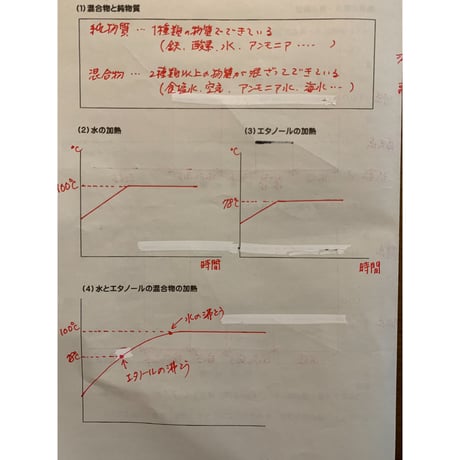 (1)混合物と純物質
純物質…1種類の物質でできている
(鉄、酸素、水、アンモニア……)
混合物…2種類以上の物質が混ざってできている
(食塩水、空気、アンモニア水、海水…)
(2)水の加熱
(3)エタノールの加熱
℃
100℃
時間
℃
78℃
時間
(4)水とエタノールの混合物の加熱
℃
水の沸とう
100℃
78℃
エタノールの沸とう